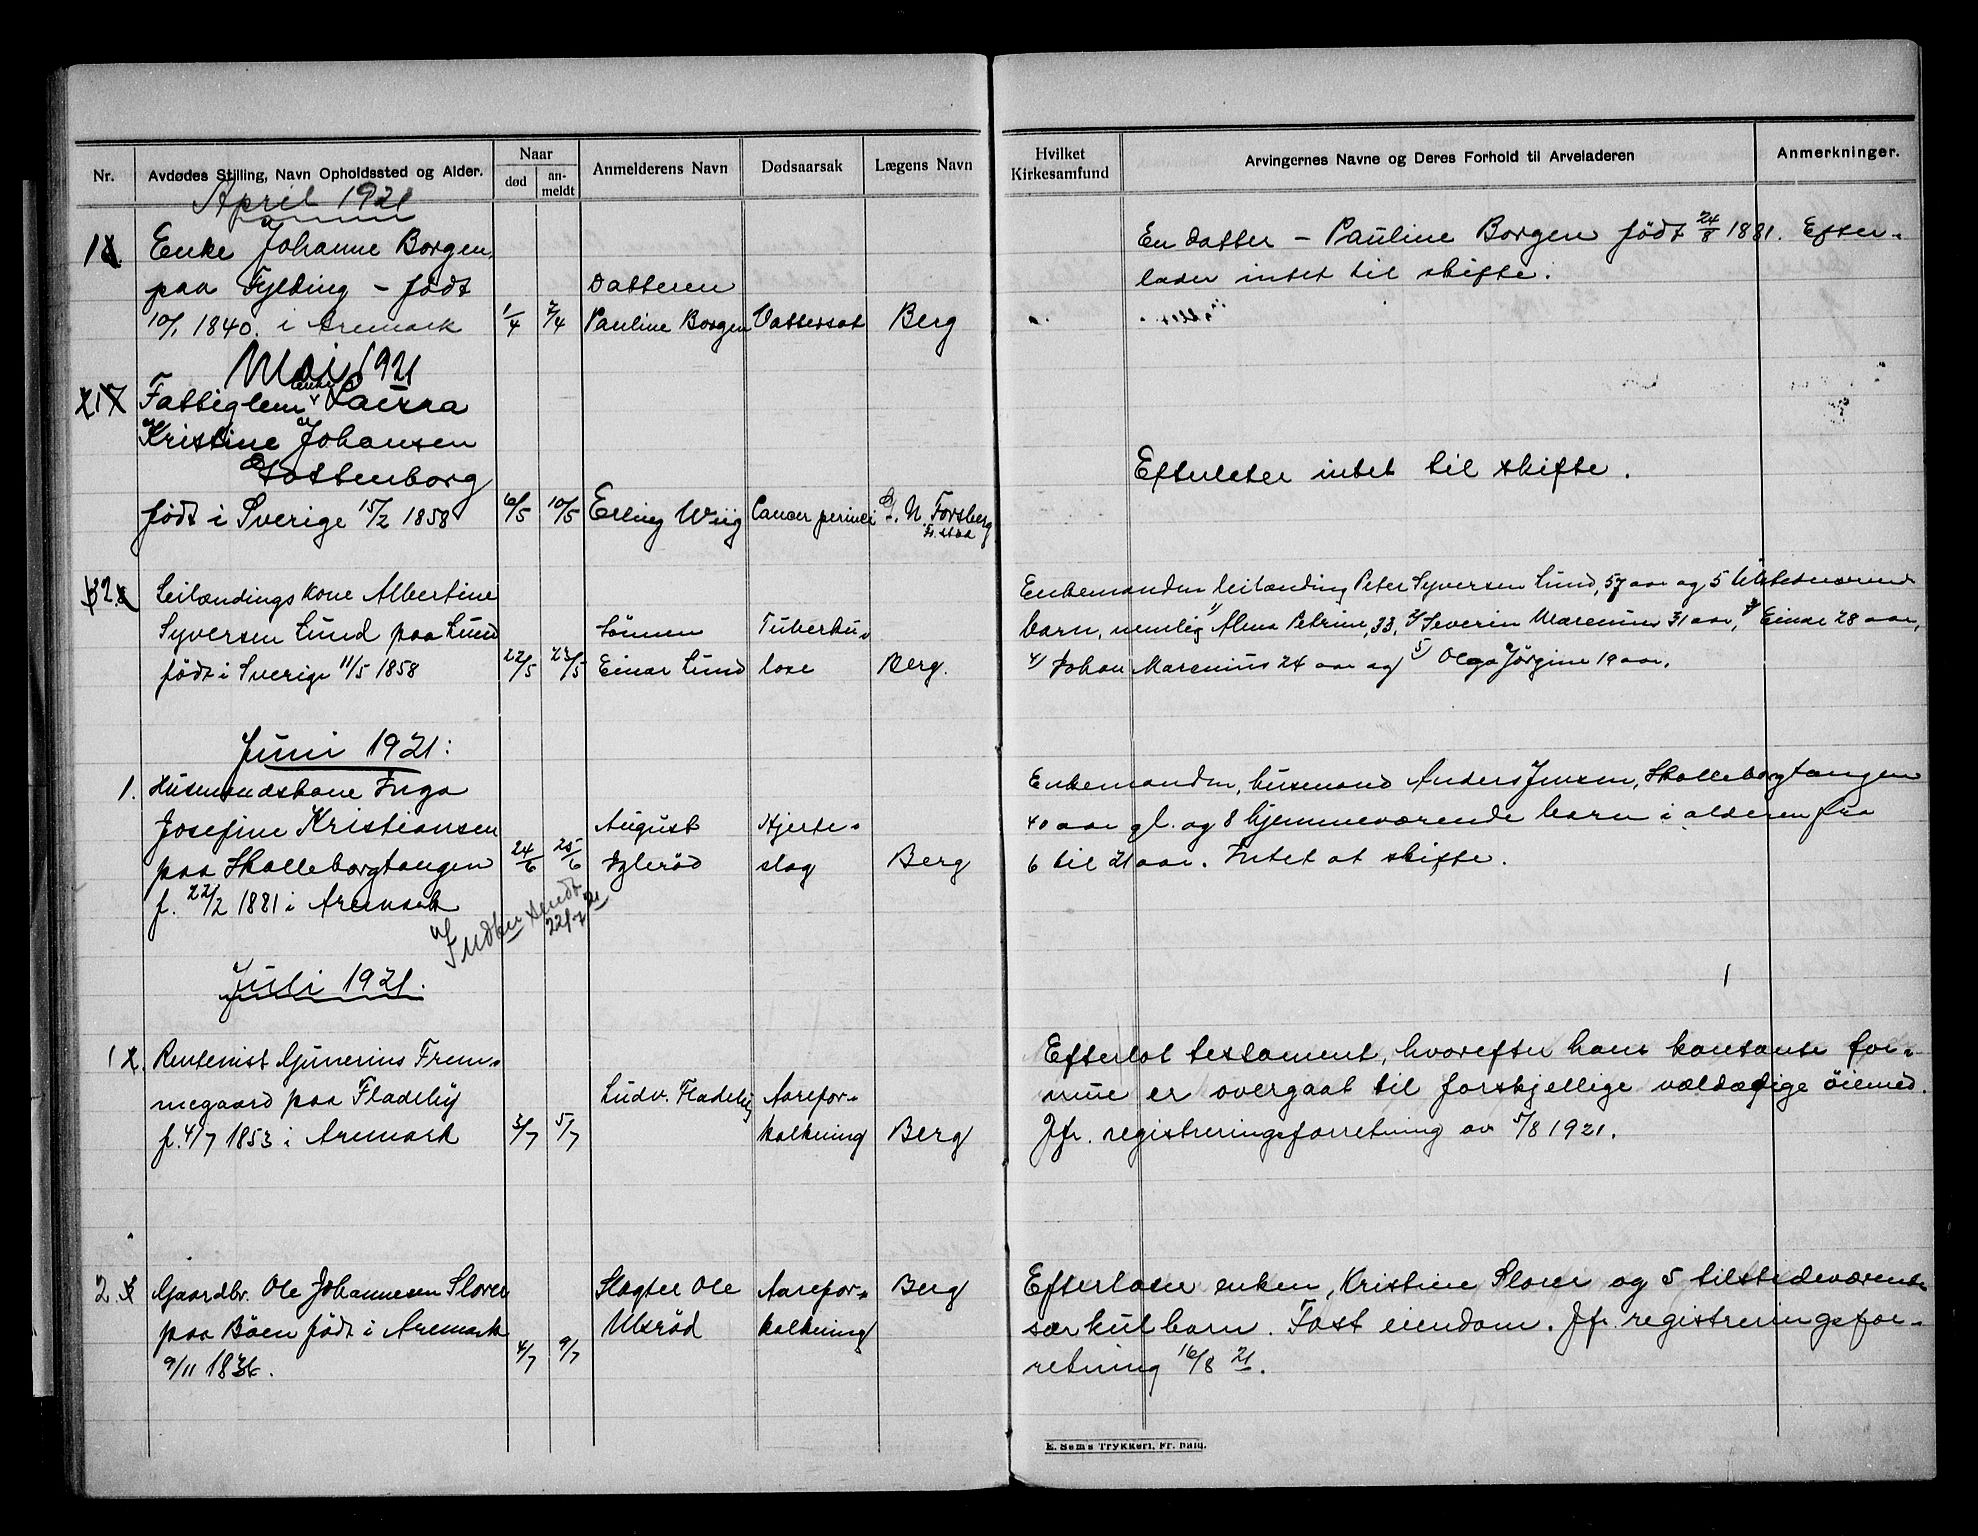 Nr.
Avdødes Stilling, Navn Opholdssted og Alder.
Naar
død
an-
meldt
Anmelderens Navn
Dødsaarsak
Lægens Navn
Hvilket
Kirkesamfund
Arvingernes Navne og Deres Forhold til Arveladeren
Anmerkninger.
April 1921
1. Enke Johanne Borgen,
paa Fylding – født
10/1 1840. i Aremark
1/4 2/4
Datteren
Pauline Borgen
Vattersot
Berg
En datter – Pauline Borgen født 24/8 1881. Efter-
lader intet til skifte.
Mai 1921
1 Fattiglem enke Laura
Kristine Johansen
Gottenborg
født i Sverige 15/2 1858
6/5 10/5
Erling Wiig
Cancer perinei
Dr. N. Forsberg
Fr.stad
Efterlater intet til skifte.
2. Leilændingskone Albertine
Syversen Lund paa Lund
født i Sverige 11/5 1858
22/5 23/5
Sönnen
Einar Lund
Tuberku-
lose
Berg.
Enkemanden leilænding Peter Syversen Lund, 57 aar og 5 tilstedeværende
barn, nemlig 1) Alma Petrine, 33, 2) Severin Marenius 31 aar, 3) Einar 28 aar,
4) Johan Marenius 24 aar og 5) Olga Jørgine 19 aar.
Juni 1921:
1. Husmandskone Inga
Josefine Kristiansen
paa Skolleborgtangen
f. 22/2 1881 i Aremark
24/6 25/6
August
Iglerød
Hjerte-
slag
Berg
Enkemanden, husmand Anders Jensen, Skolleborgtangen
40 aar gl. og 8 hjemmeværende barn i alderen fra
6 til 21 aar. Intet at skifte.
Indber. sendt
22/7 21
Juli 1921.
1 Rentenist Gunerius Frem-
megaard paa Fladeby
f. 4/7 1853 i Aremark
3/7 5/7
Ludv. Fladeby
Aarefor-
kalkning
Berg
Efterlot testament, hvorefter hans kontante for-
mue er overgaat til forskjellige vældædige øiemed.
Jfr. registreringsforretning av 5/8 1921.
2. Gaardbr. Ole Johannesen Slorer
paa Böen født i Aremark
9/11 1836.
4/7 9/7
Slagter Ole
Ulsrød
Aarefor-
kalkning
Berg
Efterlater enken, Kristine Slorer og 5 tilstedeværende
særkulbarn. Fast eiendom. Jfr. registreringsfor-
retning 16/8 21.
E. Sem's Trykkeri, Fr. hald.